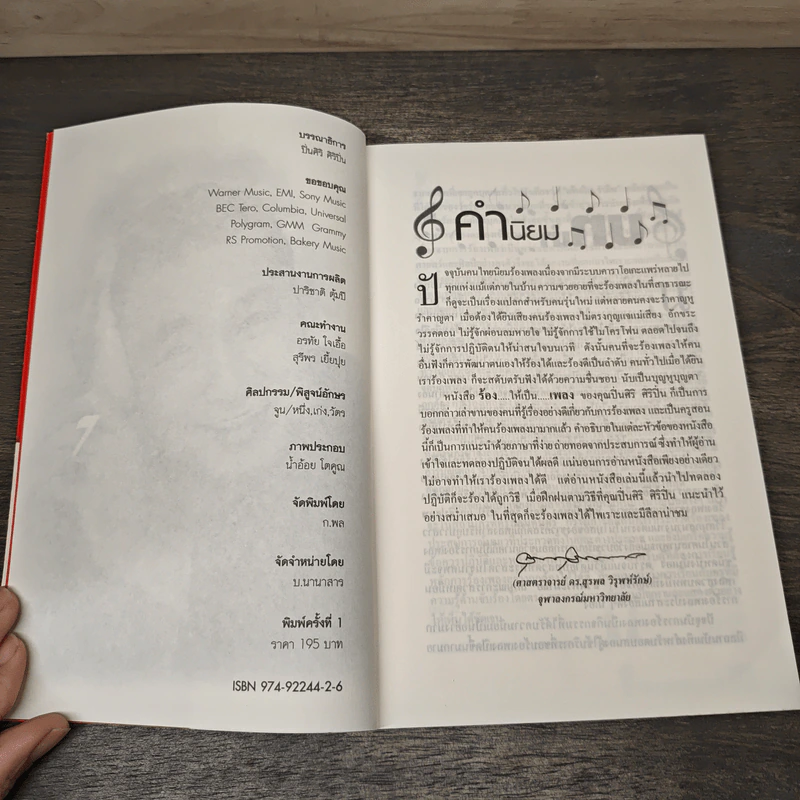 บรรณาธิการ
ปิ่นศิริ ศิริปิ่น
ขอขอบคุณ
Warner Music, EMI, Sony Music
BEC Tero, Columbia, Universal
Polygram, GMM Grammy
RS Promotion, Bakery Music
ประสานงานการผลิต
ปาริชาติ ตุ้มปี
คณะทำงาน
อรทัย ใจเอื้อ
สุวีพร เอี้ยปุย
ศิลปกรรม/พิสูจน์อักษร
จูน/หนึ่ง,เก่ง,วัตร
ภาพประกอบ
น้ำอ้อย โตคูณ
จัดพิมพ์โดย
ก.พล
จัดจำหน่ายโดย
บ.นานาสาร
พิมพ์ครั้งที่ 1
ราคา 195 บาท
ISBN 974-92244-2-6
คำนิยม
ปัจจุบันคนไทยนิยมร้องเพลงเนื่องจากมีระบบคาราโอเกะแพร่หลายไป
ทุกแห่งแม้แต่ภายในบ้าน ความขวยอายที่จะร้องเพลงในที่สาธารณะ
ก็ดูจะเป็นเรื่องแปลกสำหรับคนรุ่นใหม่ แต่หลายคนคงจะรำคาญหู
รำคาญตา เมื่อต้องได้ยินเสียงคนร้องเพลงไม่ตรงกุญแจแม่เสียง อักขระ
วรรคตอน ไม่รู้จักผ่อนลมหายใจ ไม่รู้จักการใช้ไมโครโฟน ตลอดไปจนถึง
ไม่รู้จักการปฏิบัติตนให้น่าสนใจบนเวที ดังนั้นคนที่จะร้องเพลงให้คน
อื่นฟังก็ควรพัฒนาตนเองให้ร้องได้และร้องดีเป็นลำดับ คนทั่วไปเมื่อได้ยิน
เราร้องเพลง ก็จะสดับตรับฟังได้ด้วยความชื่นชอบ นับเป็นบุญหูบุญตา
หนังสือ ร้อง.....ให้เป็น.....เพลง ของคุณปิ่นศิริ ศิริปิ่น เป็นการ
บอกกล่าวเล่าขานของคนที่รู้เรื่องอย่างดีเกี่ยวกับการร้องเพลง และเป็นครูสอน
ร้องเพลงที่ทำให้คนร้องเพลงมามากแล้ว คำอธิบายในแต่ละหัวข้อของหนังสือ
นี้ก็เป็นการแนะนำด้วยภาษาที่ง่ายถ่ายทอดจากประสบการณ์ ซึ่งทำให้ผู้อ่าน
เข้าใจและทดลองปฏิบัติจนได้ผลดี แน่นอนการอ่านหนังสือเพียงอย่างเดียว
ไม่อาจทำให้เราร้องเพลงได้ดี แต่อ่านหนังสือเล่มนี้แล้วนำไปทดลอง
ปฏิบัติก็จะร้องได้ถูกวิธี เมื่อฝึกฝนตามวิธีที่คุณปิ่นศิริ ศิริปิ่น แนะนำไว้
อย่างสม่ำเสมอ ในที่สุดก็จะร้องเพลงได้ไพเราะและมีลีลาน่าชม
(ศาสตราจารย์ ดร.สุรพล วิรุฬห์รักษ์)
จุฬาลงกรณ์มหาวิทยาลัย